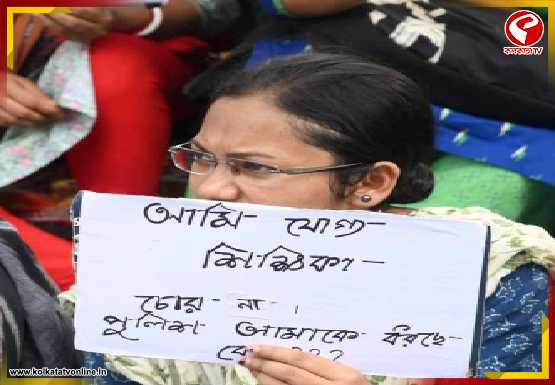 কলকাতা TV
আমি যোগ্য
শিক্ষিকা -
চোর - না ।
পুলিশ আমাকে ধরছে -
www.kolkatatvonline.in